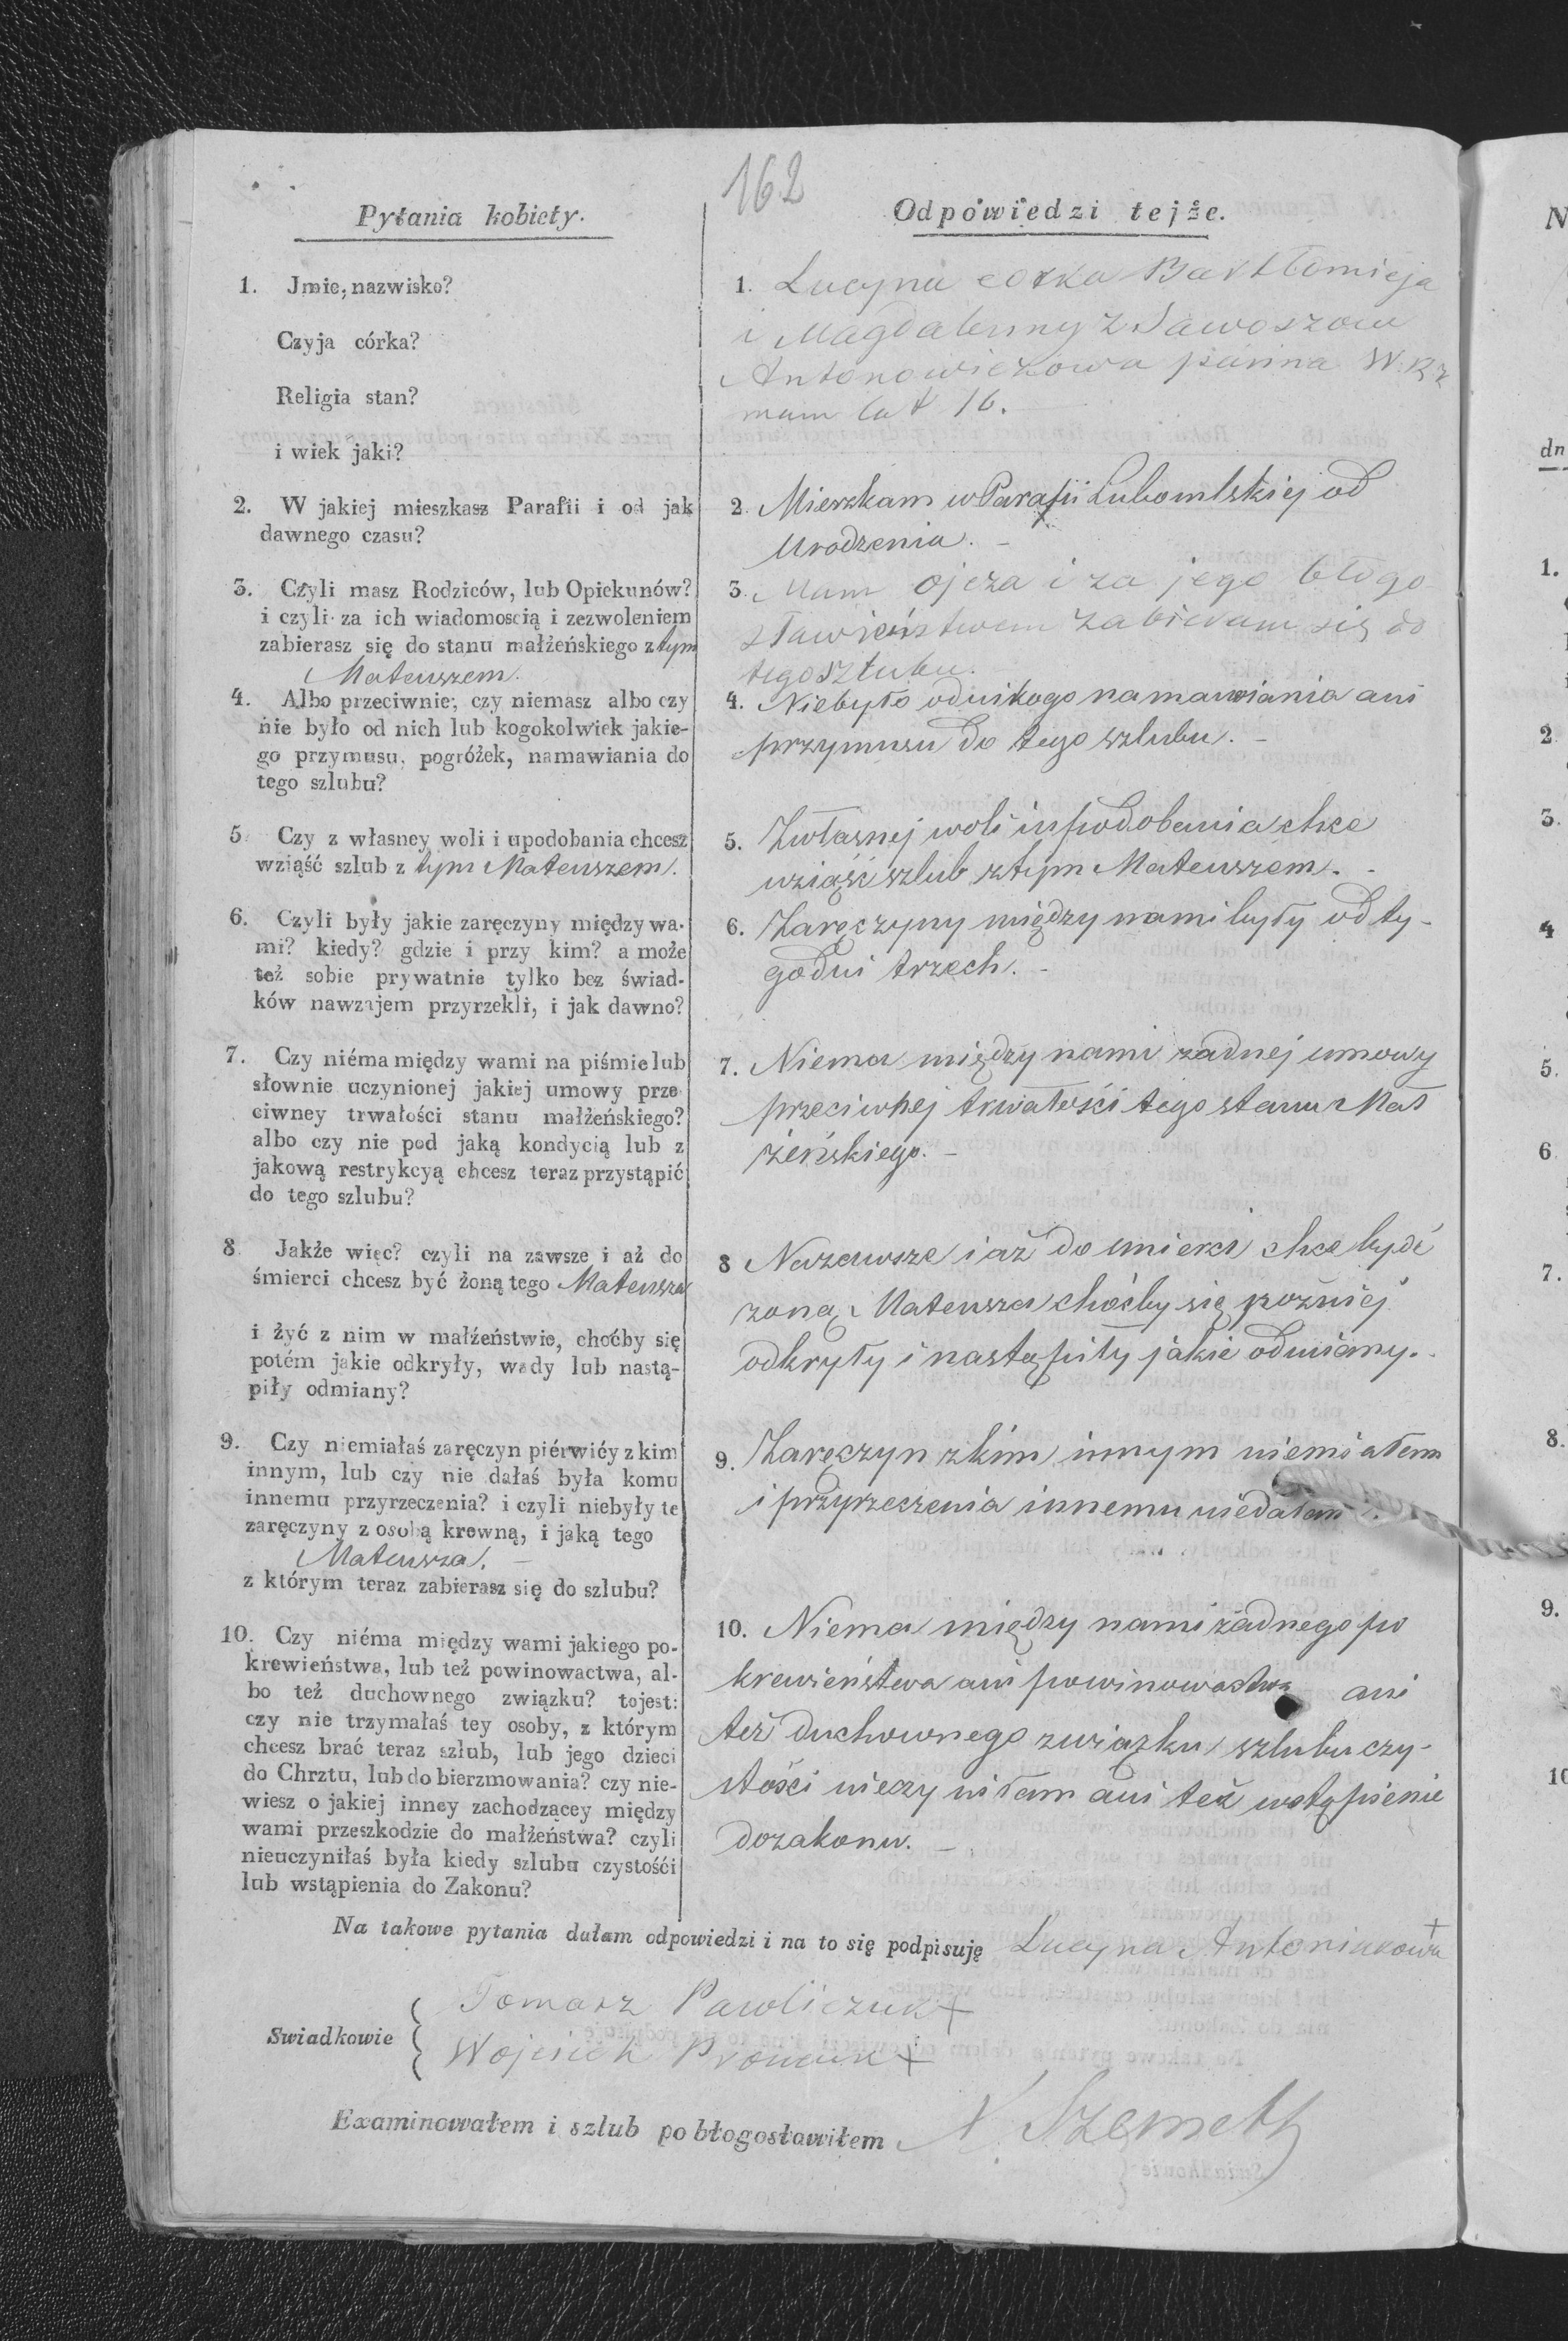 162
Pytania kobiety.
1. Jmie, nazwisko?
Czyja córka?
Religia stan?
i wiek jaki?
2. W jakiej mieszkasz Parafii i od jak
dawnego czasu?
3. Czyli masz Rodziców, lub Opiekunów?
i czyli za ich wiadomoscią i zezwoleniem
zabierasz się do stanu małżeńskiego z tym
Mateuszem.
4. Albo przeciwnie, czy niemasz albo czy
nie było od nich lub kogokolwiek jakie-
go przymusu, pogróżek, namawiania do
tego szlubu?
5. Czy z własney woli i upodobania chcesz
wziąść szlub z tym Mateuszem.
6. Czyli były jakie zaręczyny między wa-
mi? kiedy? gdzie i przy kim? a może
też sobie prywatnie tylko bez świad-
ków nawzajem przyrzekli, i jak dawno?
7. Czy niéma między wami na piśmie lub
słownie uczynionej jakiej umowy prze
ciwney trwałości stanu małżeńskiego?
albo czy nie pod jaką kondycią lub z
jakową restrykcyą chcesz teraz przystąpić
do tego szlubu?
8. Jakże więc? czyli na zawsze i aż do
śmierci chcesz być żoną tego Mateusza
i żyć z nim w małżeństwie, choćby się
potém jakie odkryły, wady lub nastą-
piły odmiany?
9. Czy niemiałaś zaręczyn piérwićy z kim
innym, lub czy nie dałaś była komu
innemu przyrzeczenia? i czyli niebyły te
zaręczyny z osobą krewną, i jaką tego
Mateusza.
z którym teraz zabierasz się do szlubu?
10. Czy niéma między wami jakiego po-
krewieństwa, lub też powinowactwa, al-
bo też duchownego związku? tojest:
czy nie trzymałaś tey osoby, z którym
chcesz brać teraz szlub, lub jego dzieci
do Chrztu, lub do bierzmowania? czy nie-
wiesz o jakiej inney zachodzącey między
wami przeszkodzie do małżeństwa? czyli
nieuczyniłaś była kiedy szlubu czystośći
lub wstąpienia do Zakonu?
Odpowiedzi tejże.
1. Lucyna corka Bartłomieja
i Magdalenny z Sawoszow
Antonowiczowa panna W. Rz
mam lat 16.
2. Mieszkam w Parafii Lubomlskiej od
Urodzenia.
3. Mam ojcza i za jego błogo
sławieństwem zabieram się do
tego szlubu.
4. Niebyło odnikogo namawiania ani
przymusu do tego szlubu.
5. Zwłasnej woli i upodobania chce
wziąść szlub ztym Mateuszem.
6. Zaręczyny między nami były od ty-
godni trzech.
7. Niema między nami żadnej umowy
przeciwnej trwałości tego stanu Mał
żeńskiego.
8 Nazawsze i aż do śmierci chce bydź
żoną Mateusza choćby się pozniej
odkryły i nastąpiły jakie odmiany.
9. Zaręczyn zkim innym niemiałam
i przyrzeczenia innemu niedałam.
10. Niema między nami żadnego po
krewieństwa ani powinowactwa ani
też duchownego związku, szlubu czy-
stości nieczyniłam ani też wstąpienie
do zakonu.
Na takowe pytania dałam odpowiedzi i na to się podpisuję Lucyna Antoniukowa +
Swiadkowie
Tomasz Pawliczuk +
Wojciech +
Examinowałem i szlub pobłogosławiłem X. Szemeth
N
dn
1.
2
3.
4
5.
6
7.
8.
9.
10